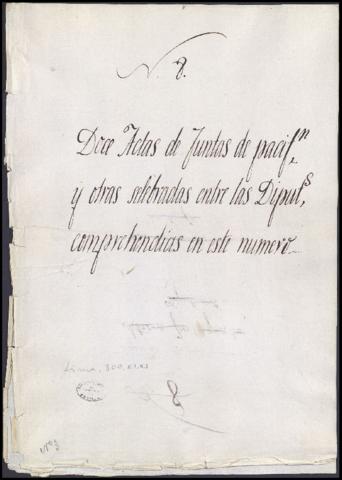 N. 8.
Doce Actas de Juntas de pacif.n
y otras selebradas entre los Diput.s
comprehendias en este numero
Lima, 800,
8
Nº 8